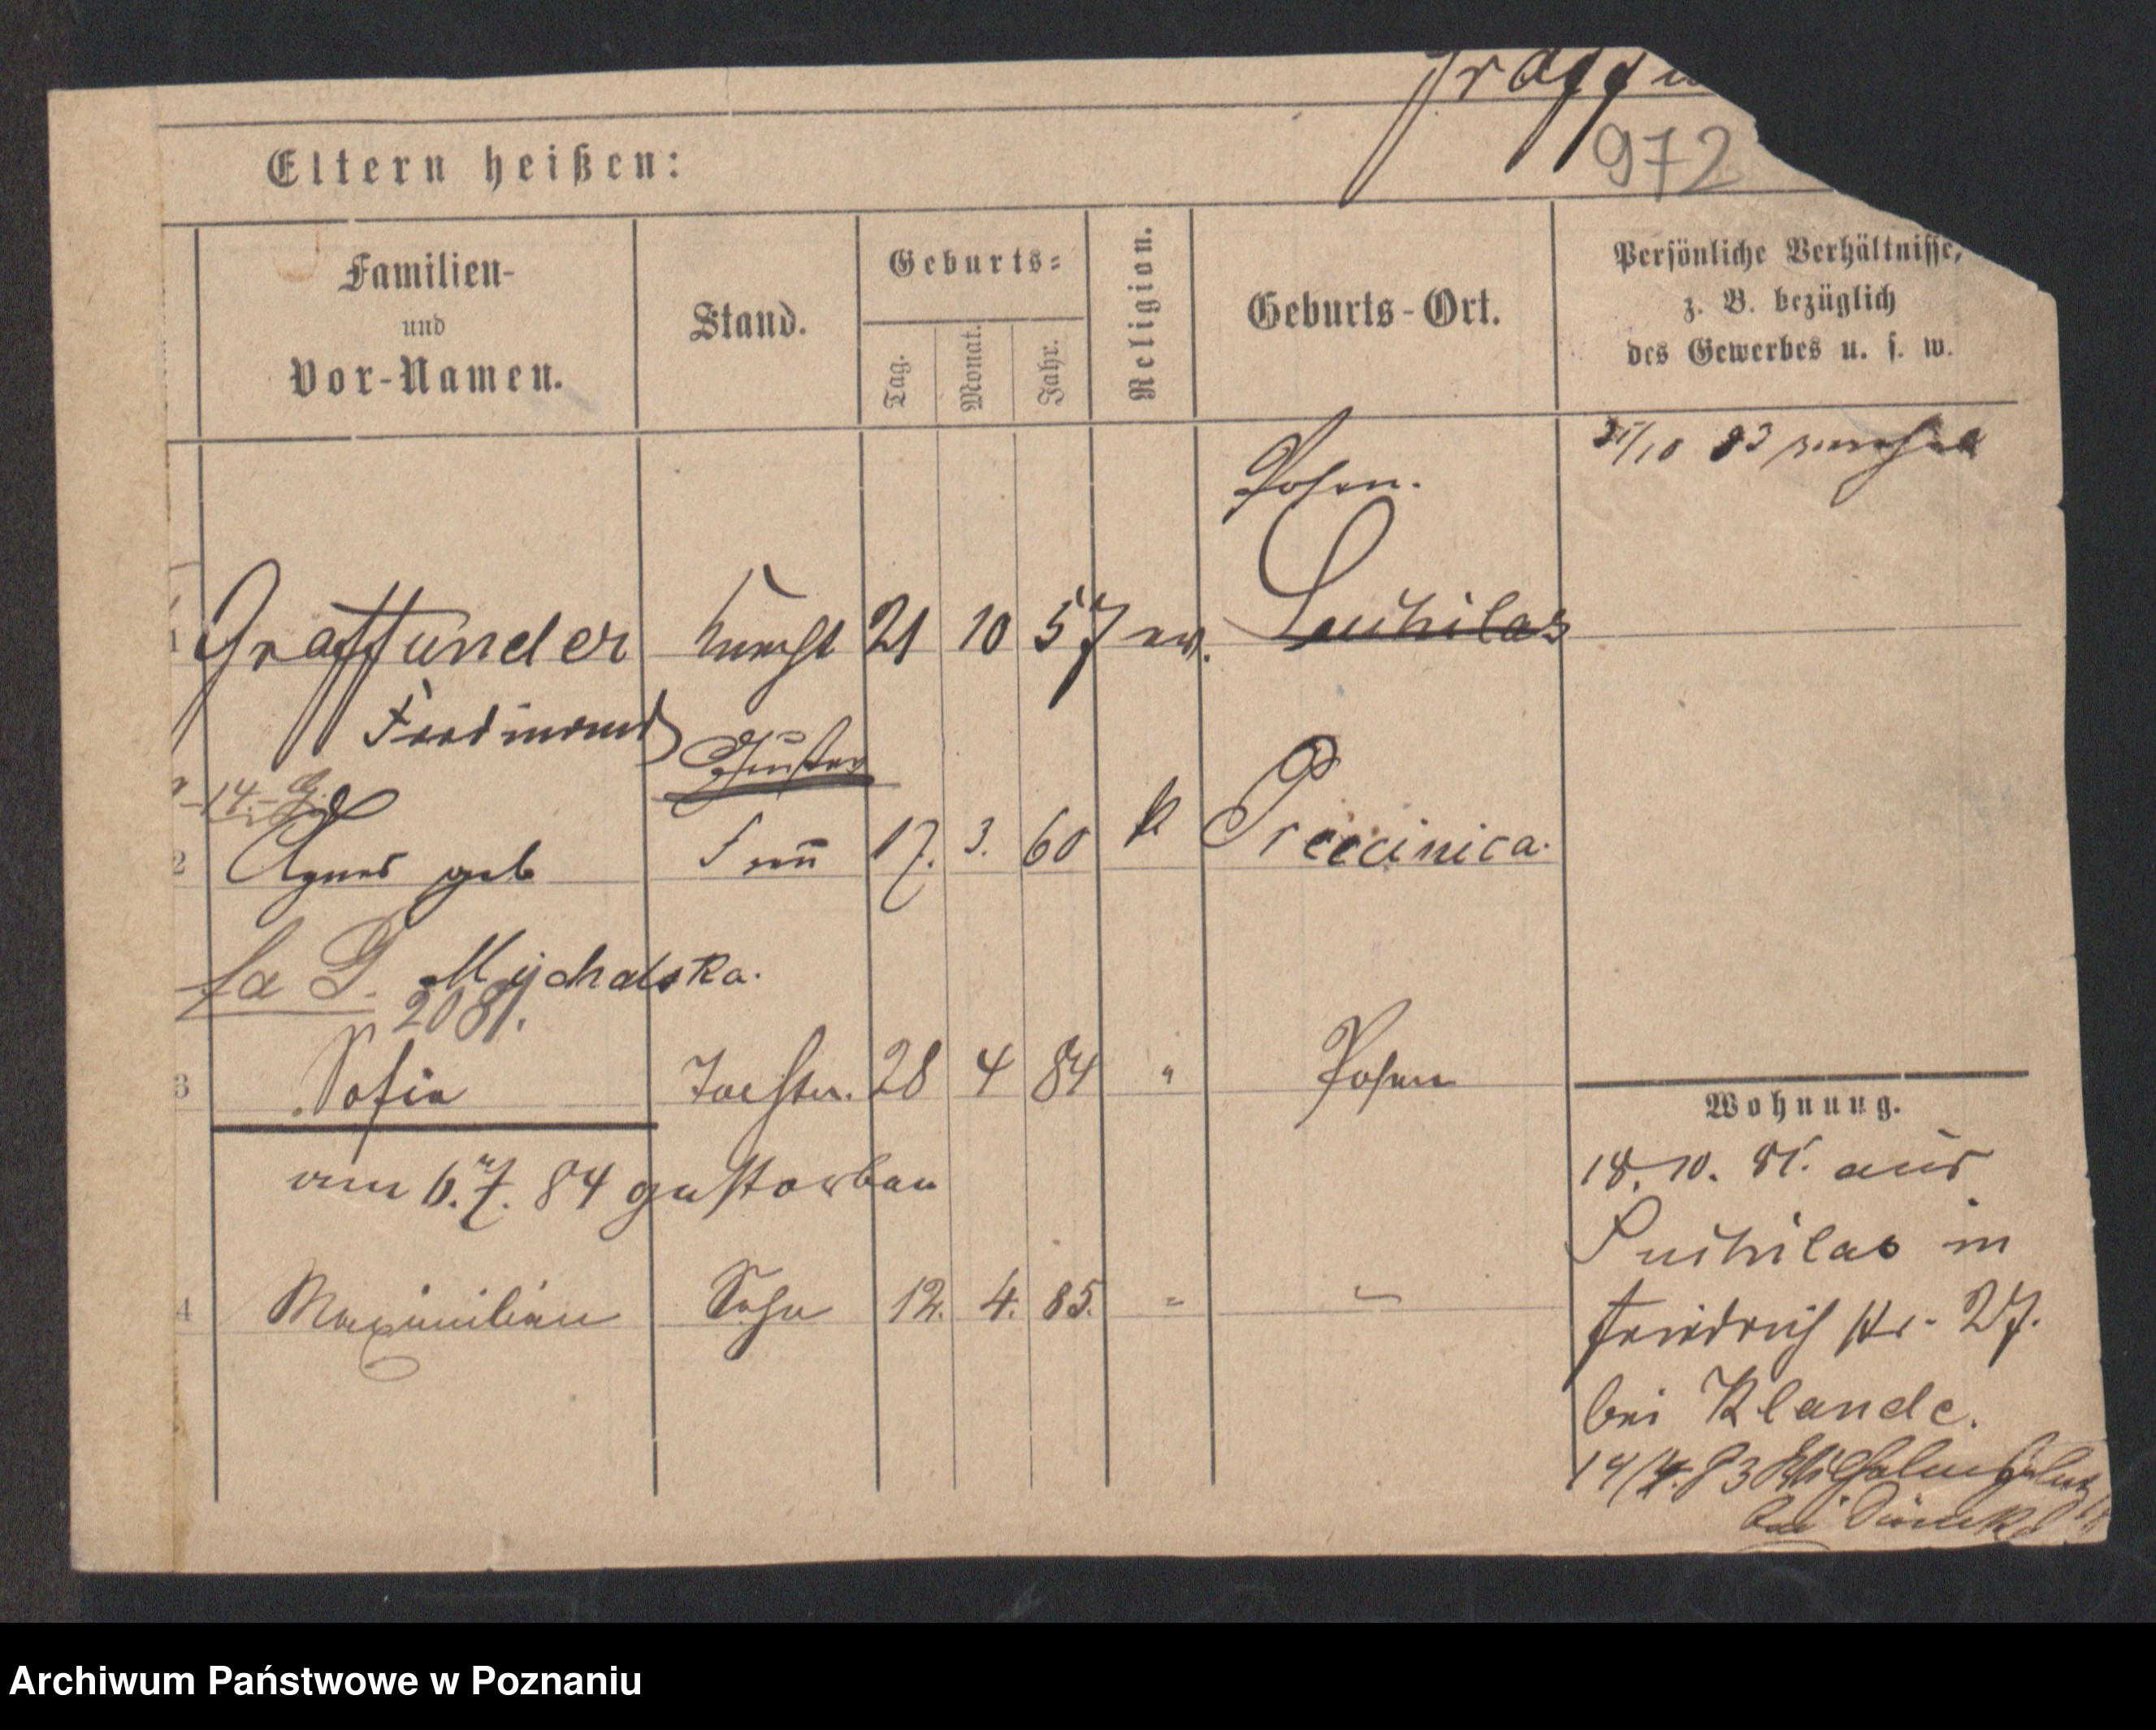 Graffu
972
Eltern heißen:
Familien-
und
Vor-Namen.
Stand.
Geburts=
Tag.
Monat.
Jahr.
Religion.
Geburts-Ort.
Persönliche Verhältnisse,
z. B. bezüglich
des Gewerbes u. s. w.
Posen.
31/10 83
1 Graffunder Knecht 21 10 57 ev. Suchilas
Ferdinand
14.
2 Agnes geb Frau 17. 3. 60 k
Mychalska.
2081.
3 Sofie Tochter. 28 4 84 " Posen
am 6. 7. 84 gestorben
4 Maximilian Sohn 12. 4. 85. " "
Wohnung.
18. 10. 81. aus
Suchilas in
Friedrich str. 27.
bei Klande.
14/4. 83
bei
Archiwum Państwowe w Poznaniu